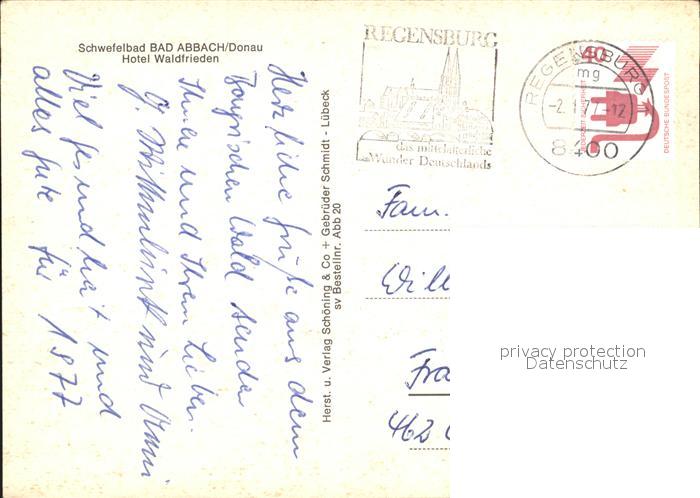 Schwefelbad BAD ABBACH/Donau
Hotel Waldfrieden
Herzliche Grüße aus dem
Bayrischen Wald senden
Ihnen und Ihren Lieben.
und
Viel Gesundheit und
alles Gute für 1977
Herst. u. Verlag Schöning & Co + Gebrüder Schmidt - Lübeck
sv Bestellnr. Abb 20
REGENSBURG
das mittelalterliche
Wunder Deutschlands
REGENSBURG
mg
-2.1.77-12
8400
40
JEDERZEIT SICHERHEIT
DEUTSCHE BUNDESPOST
Fam.
Will
Fra
462
privacy protection
Datenschutz